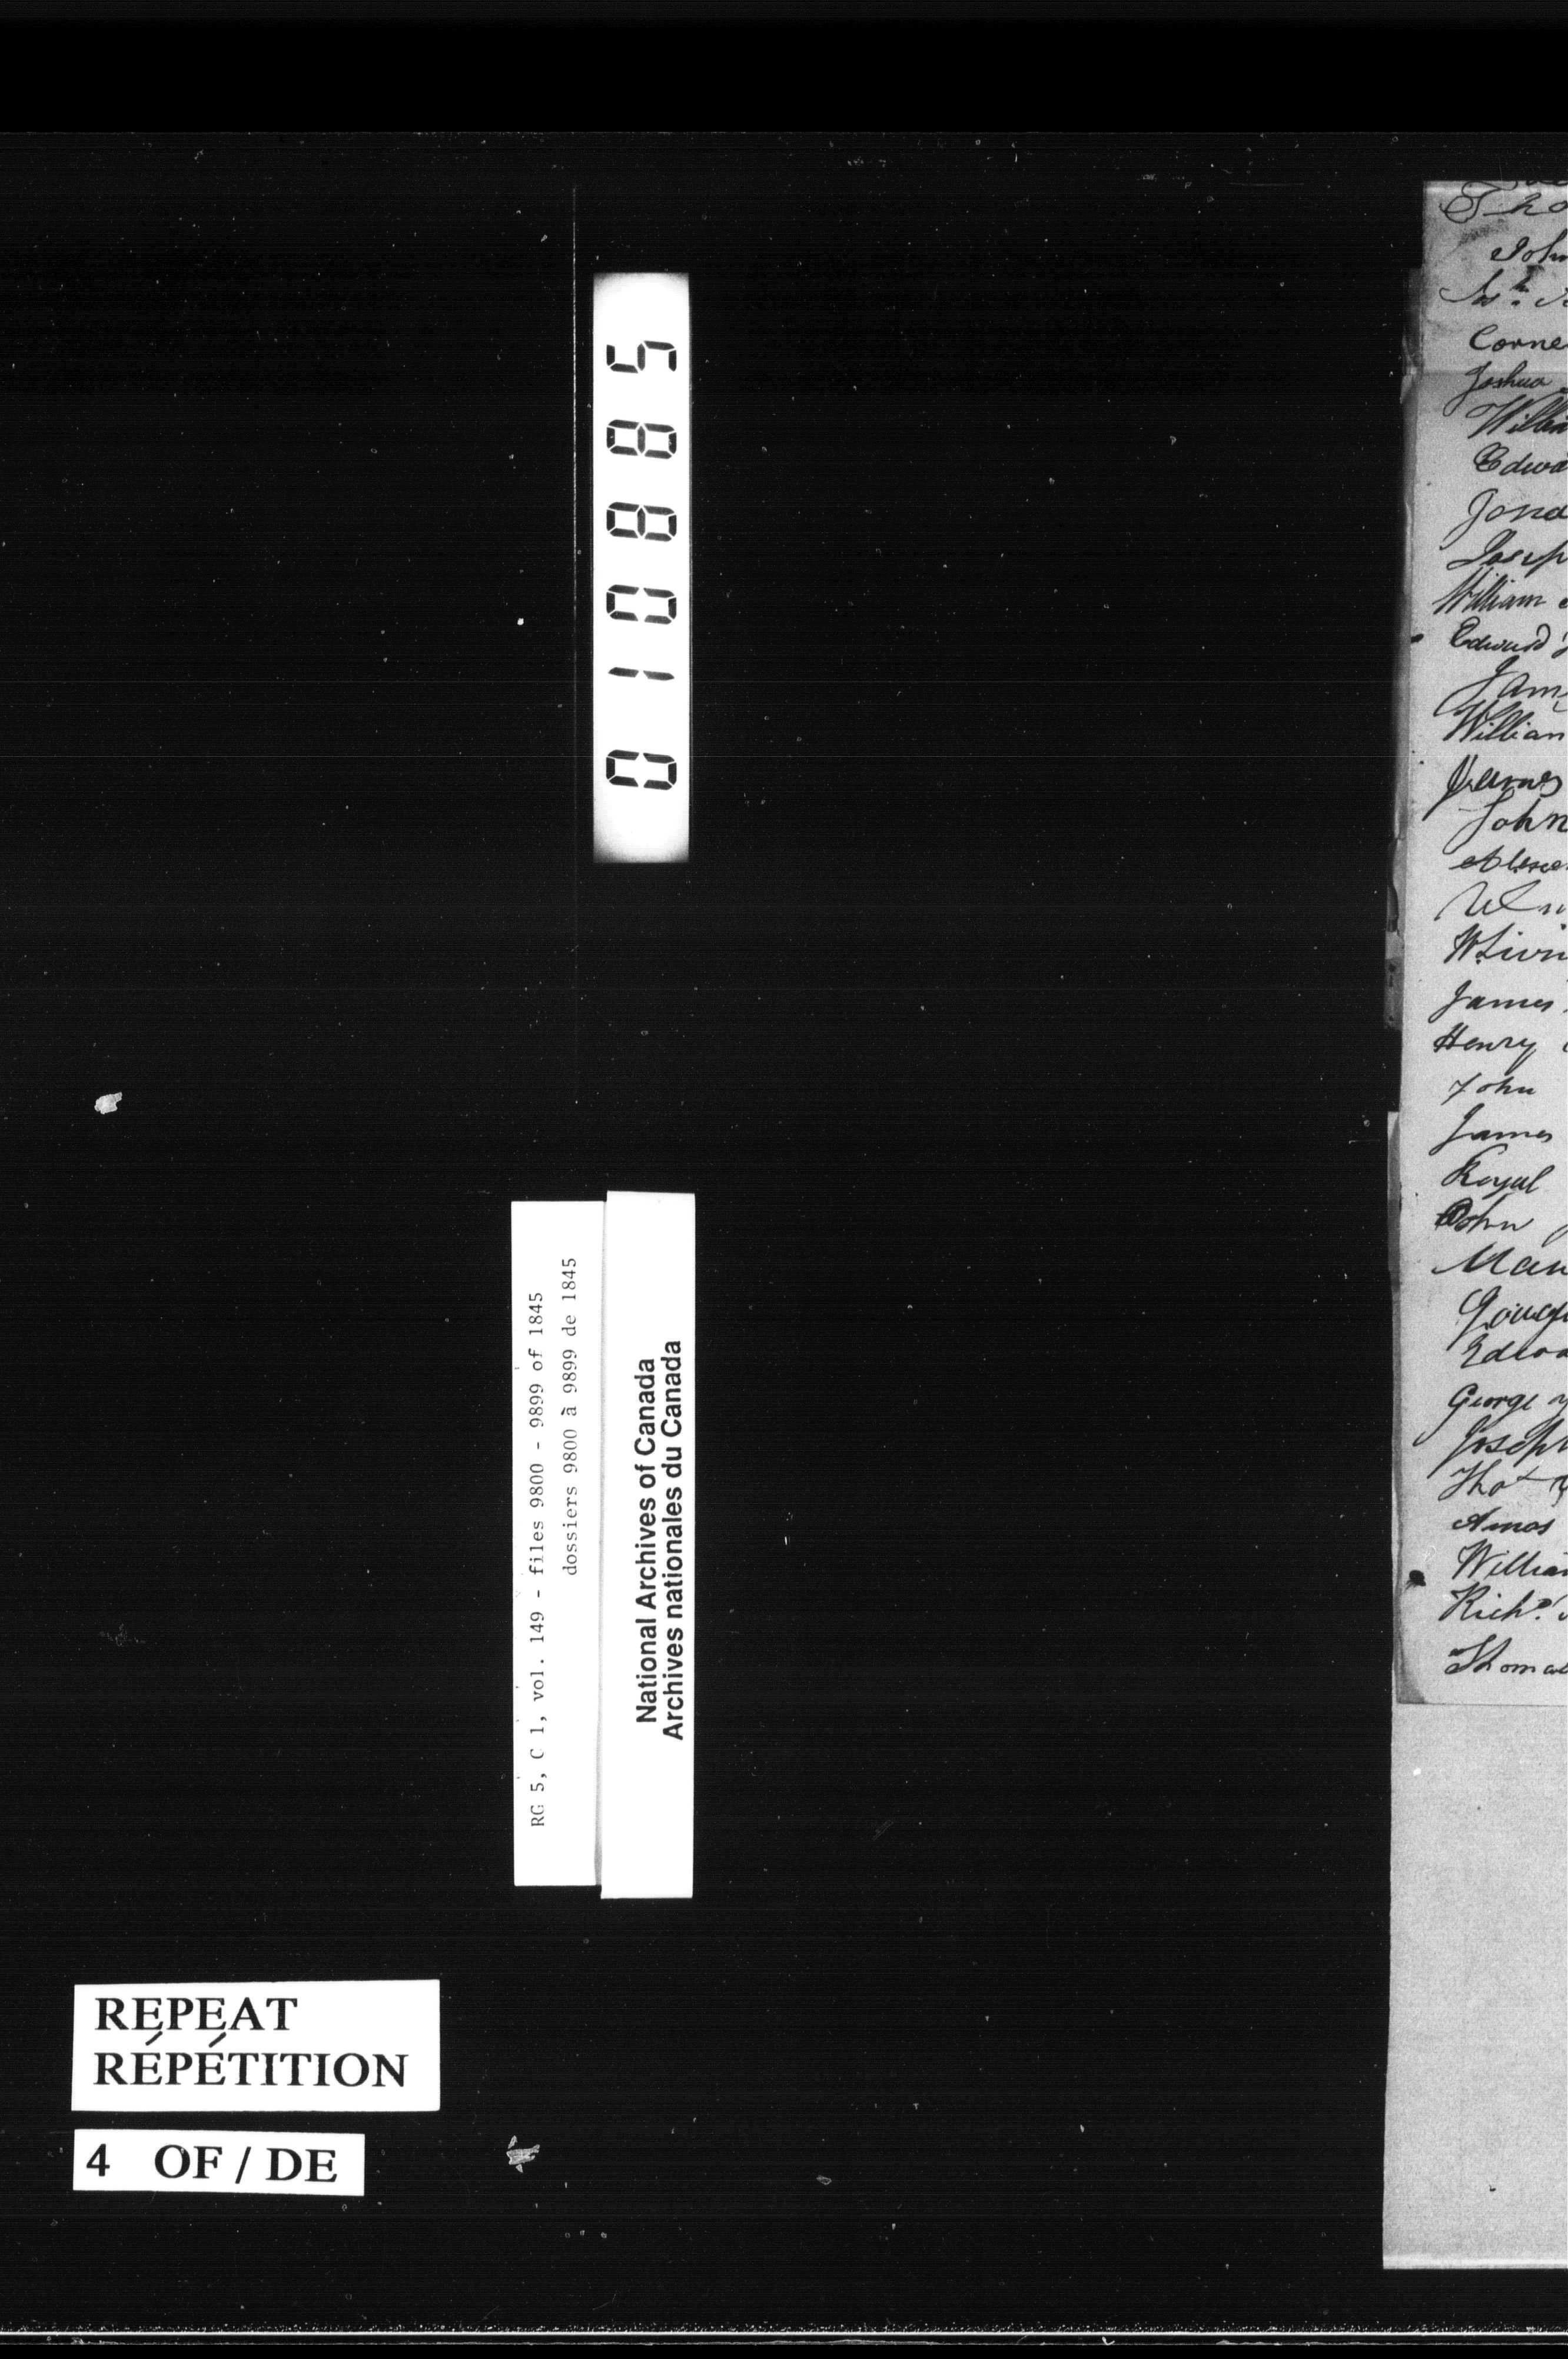 010885
RG 5, C 1, vol. 149 - files 9800 - 9899 of 1845
dossiers 9800 à 9899 de 1845
National Archives of Canada
Archives nationales du Canada
REPEAT
RÉPÉTITION
4 OF / DE
Tho
John
Corne
Joshua
Willia
Edwa
Jona
Josep
William
Edward
Jam
William
James
John
W. Livin
James
Henry
John
James
Royal
John
Edwa
George
Joseph
Tho
Amos
William
Richd.
Thomas